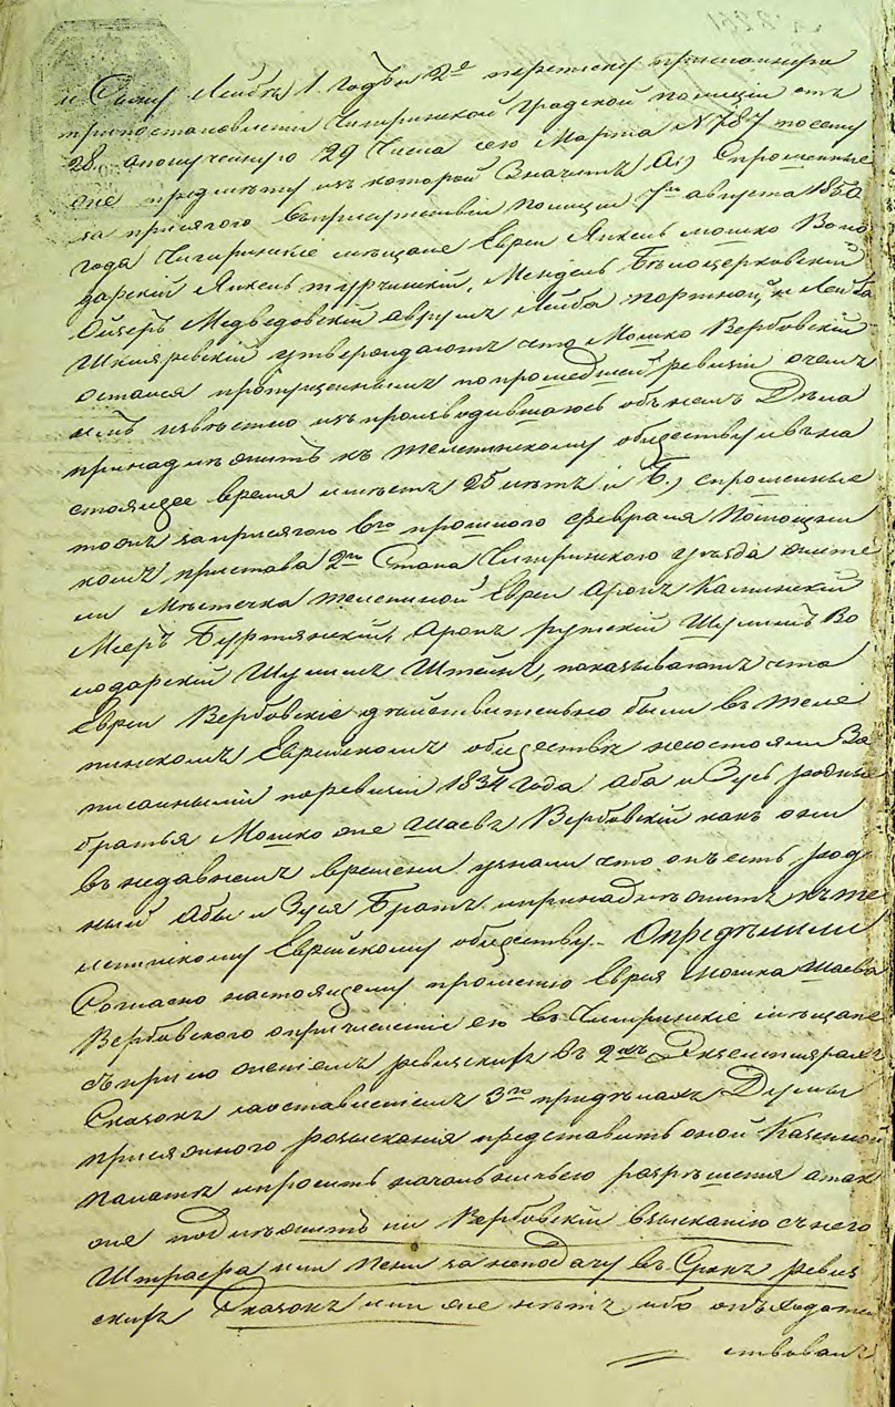 и Сыну Лейбѣ 1. годъ и 2е переписку присланную
при постановленіи Чигиринской градской полиціи отъ
28. полученную 29 Числа сего Марта № 787 по сему
же предмѣту изъ которой Значитъ А.) Спрошенные
за присягою въ присутствіи полиціи 7го августа 1850
года Чигиринскіе мѣщане Евреи Янкель мошко Воло
дарскій Янкель турчинскій, Мендель Бѣлоцерковскій
Ойзеръ Медведовскій аврумъ Лейба портной, и Лейба
Шкляревскій утверждаютъ что Мошко Вербовскій
остался пропущеннымъ по прошедшей ревизіи о чемъ
имъ извѣстно изъ производившагося объ немъ Дѣла
принадлежитъ къ телепинскому обществу и въ на
стоящее время имѣетъ 25 лѣтъ и Б.) спрошенные
тоже за присягою 6го прошлого февраля Помощни
комъ пристава 2го Стана Чигиринского уѣзда жите
ли Мѣстечка телепиной Евреи Аронъ Каминскій
Мееръ Буртянскій, Аронъ рутскій Шулимъ Во
лодарскій Шулимъ Штейнъ, показываютъ что
Евреи Вербовскіе дѣйствительно были въ теле
пинскомъ Еврейскомъ обществѣ но состояли За
писанными по ревизіи 1834 года Аба и Зусь родные
братья Мошко же Шаевъ Вербовскій какъ они
въ недавнемъ времени узнали что онъ есть род
ный Абы и Зуся Братъ и принадлежитъ къ те
лепинскому Еврейскому обществу. Опредѣлили
Согласно настоящему прошенію Еврея Мошка Шаева
Вербовского о причисленіи его въ Чигиринскіе мѣщане
съ приложеніемъ ревизскихъ въ 2хъ Экземплярахъ
Сказокъ и составленіемъ 3го придѣлахъ Думы
присяжного розысканія представить оной Казенной
палатѣ и просить начальничьего разрѣшенія а так
же подлежитъ ли Вербовскій взысканію съ него
Штрафа или пени за неподачу въ Срокъ ревиз
скихъ Сказокъ или же нѣтъ, ибо онъ ходатай
ствовалъ